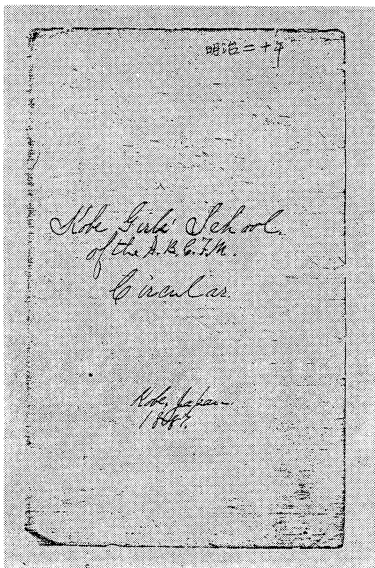 明治二十年
Kobe Girls' School
of the A.B.C.F.M.
Circular.
Kobe, Japan.
1887.